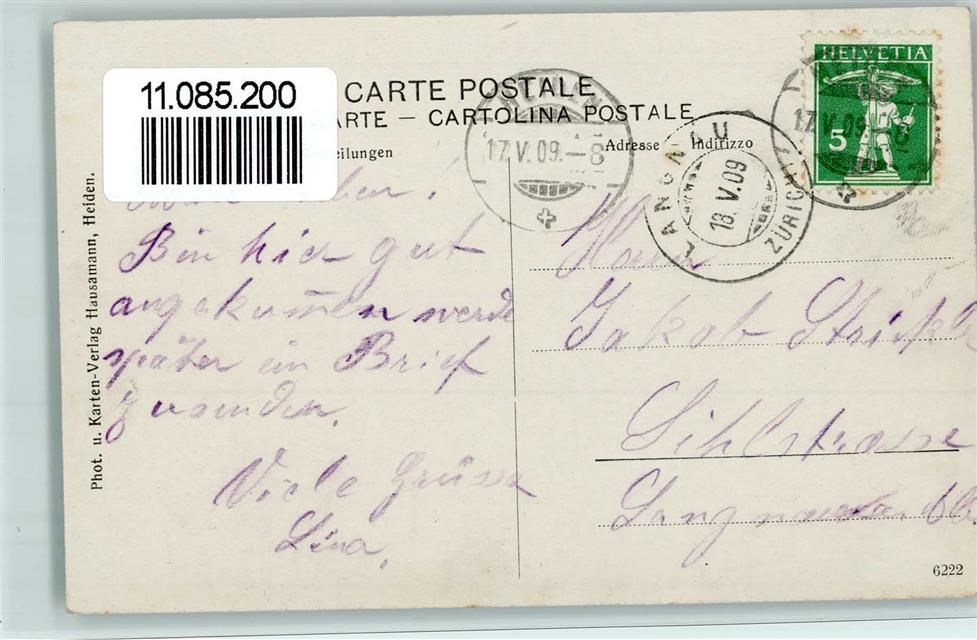 11.085.200
CARTE POSTALE
ARTE — CARTOLINA POSTALE
eilungen
Adresse — Indirizzo
HELVETIA
5
17.V.09.–8
17.V.09.–8
LANGNAU
18.V.09
ZÜRICH
Phot. u. Karten-Verlag Hausamann, Heiden.
Bin hier gut
angekommen werde
später ein Brief
zusenden.
Viele Grüsse
Lina.
Herrn
Jakob
Sihlstrasse
Langnau a. Al
6222